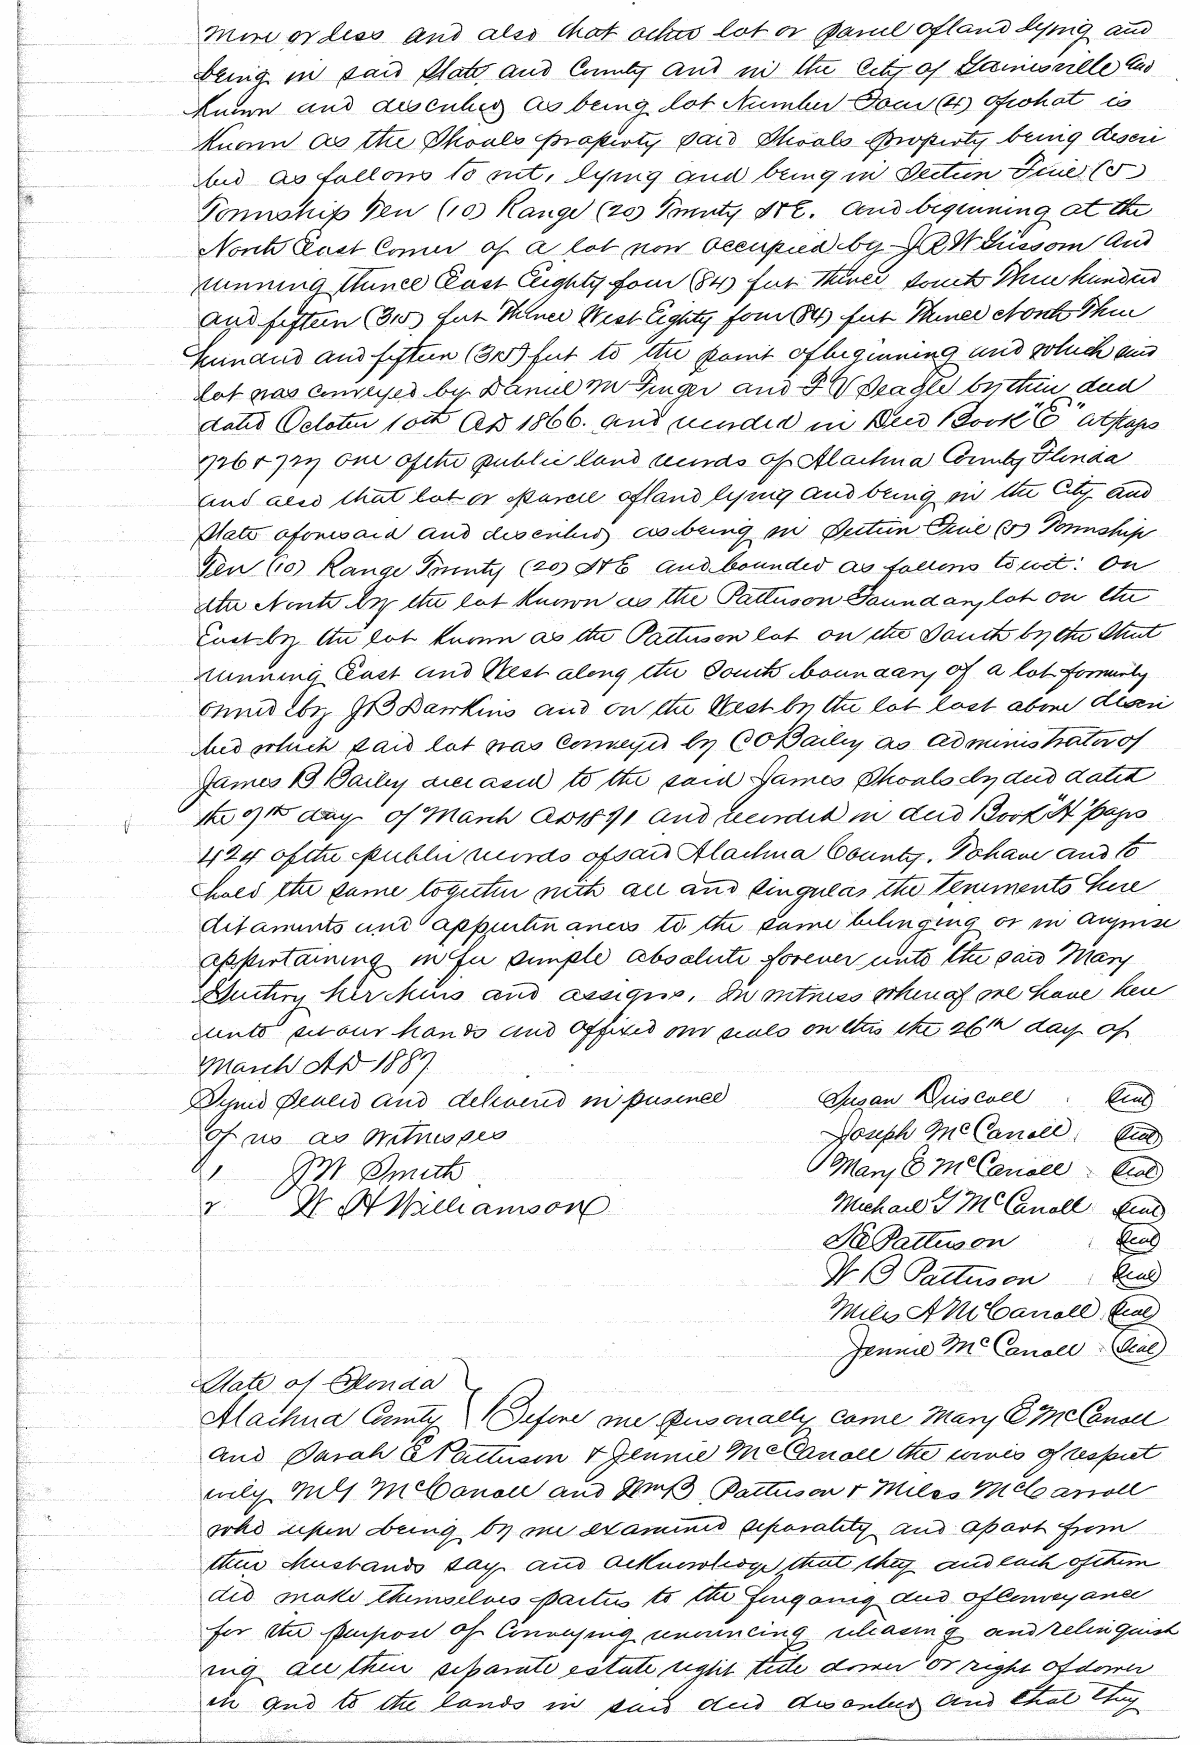 more or less and also that other lot or parcel of land lying and
being in said State and County and in the City of Gainesville and
known and described as being lot Number Four (4) of what is
known as the Shoals property said Shoals property being descri
bed as follows to wit, lying and being in Section Five (5)
Township Ten (10) Range (20) Twenty S&E. and beginning at the
North East Corner of a lot now occupied by J R W Gissom and
running thence East Eighty four (84) feet thence South Three hundred
and fifteen (315) feet Thence West Eighty four (84) feet Thence North Three
hundred and fifteen (315) feet to the point of beginning and which said
lot was conveyed by Daniel M and F Y Seagle by their deed
dated October 10th AD 1866. and recorded in Deed Book "E" at page
726 & 727 one of the public land records of Alachua County Florida
and also that lot or parcel of land lying and being in the City and
State aforesaid and described as being in Section Five (5) Township
Ten (10) Range Twenty (20) S&E and bounded as follows to wit: on
the North by the lot known as the Patterson Foundary lot on the
East by the lot known as the Patterson lot on the South by the Street
running East and West along the South boundary of a lot formerly
owned by J B Dawkins and on the West by the lot last above descri
bed which said lot was conveyed by C O Bailey as administrator of
James B Bailey deceased to the said James Shoals by deed dated
the 7th day of March AD 1871 and recorded in deed Book "H" pages
424 of the public records of said Alachua County. To have and to
hold the same together with all and singular the tenements here
ditaments and appurtenances to the same belonging or in anywise
appertaining in fee simple absolute forever unto the said Mary
her heirs and assigns. In witness whereof we have here
unto set our hands and affixed our seals on this the 26th day of
March AD 1887
Signed Sealed and delivered in presence
of us as Witnesses
1 J W Smith
2 W H Williamson
Susan Driscoll Seal
Joseph McCarroll Seal
Mary E McCarroll Seal
Michael G McCarroll Seal
S E Patterson Seal
W B Patterson Seal
Miles A McCarroll Seal
Jennie McCarroll Seal
State of Florida
Alachua County } Before me personally came Mary E McCarroll
and Sarah E Patterson & Jennie McCarroll the wives of respect
ively M G McCarroll and Wm B Patterson & Miles McCarroll
who upon being by me examined separately and apart from
their husbands say and acknowledge that they and each of them
did make themselves parties to the foregoing deed of Conveyance
for the purpose of Conveying renouncing releasing and relinquish
ing all their separate estate right title dower or right of dower
in and to the lands in said deed described and that they